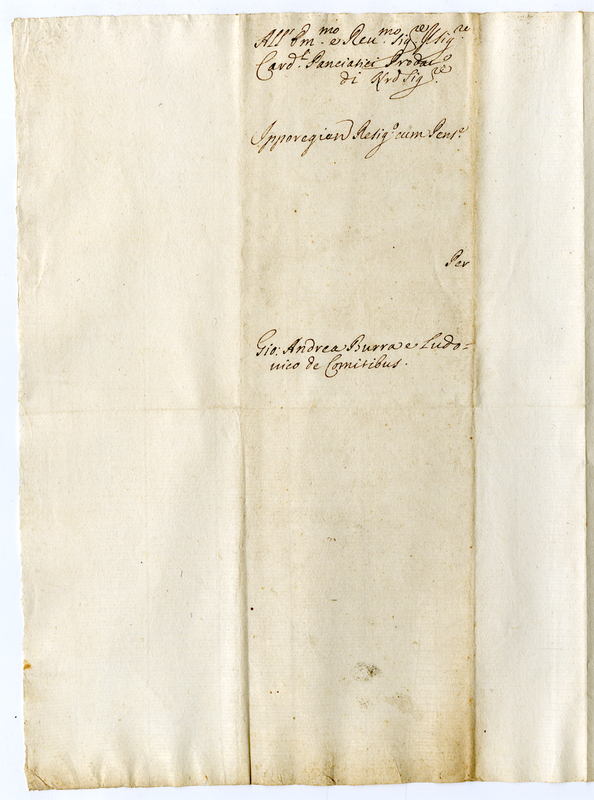 All' Em.mo e Reu.mo Sig.re Sig.re
Card.l Panciatici Prodat.o
di Nro Sig.re
Ipporegien Resig.o cum Pens.e
Per
Gio: Andrea Burra e Ludo=
uico de Comitibus.